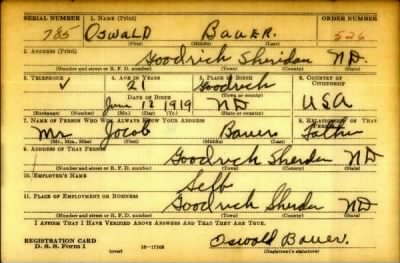 SERIAL NUMBER 1. NAME (Print) ORDER NUMBER
785 OSWALD BAUER. 526
(First) (Middle) (Last)
2. ADDRESS (Print)
Goodrich Sheridan N.D.
(Number and street or R. F. D. number) (Town) (County) (State)
3. TELEPHONE 4. AGE IN YEARS 5. PLACE OF BIRTH 6. COUNTRY OF CITIZENSHIP
✓ 21 Goodrich
DATE OF BIRTH (Town or county)
June 12 1919 ND USA
(Mo.) (Day) (Yr.) (State or country)
7. NAME OF PERSON WHO WILL ALWAYS KNOW YOUR ADDRESS 8. RELATIONSHIP OF THAT PERSON
Mr Jacob Bauer Father
(Mr., Mrs., Miss) (First) (Middle) (Last)
9. ADDRESS OF THAT PERSON
Goodrich Sherdan ND
(Number and street or R. F. D. number) (Town) (County) (State)
10. EMPLOYER'S NAME
Self
11. PLACE OF EMPLOYMENT OR BUSINESS
Goodrich Sherdan ND
(Number and street or R. F. D. number) (Town) (County) (State)
I AFFIRM THAT I HAVE VERIFIED ABOVE ANSWERS AND THAT THEY ARE TRUE.
REGISTRATION CARD
D. S. S. Form 1 (over) 16—17105 Oswald Bauer.
(Registrant's signature)